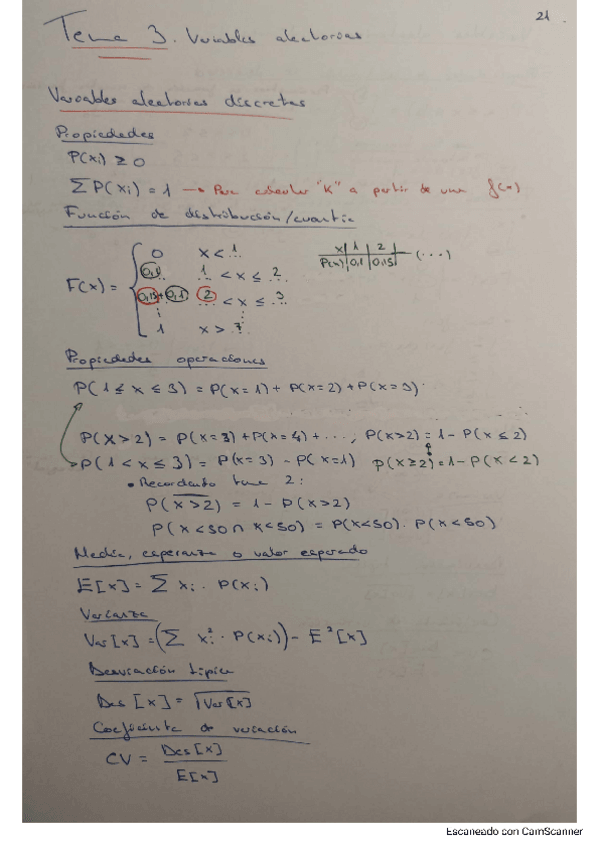 21
Tema 3. Variables aleatorias
Variables aleatorias discretas
Propiedades
P(xi) ≥ 0
Σ P(xi) = 1 → Para calcular "K" a partir de una f(x)
Función de distribución/cuantía
x | 1 | 2 |
P(x) | 0,1 | 0,15 | (...)
F(x) = { 0 x < 1
0,1 1 < x ≤ 2
0,15 + 0,1 2 < x ≤ 3
⋮ ⋮
1 x > 7
Propiedades operaciones
P(1 ≤ x ≤ 3) = P(x=1) + P(x=2) + P(x=3)
P(x>2) = P(x=3) + P(x=4) + ..., P(x>2) = 1 - P(x ≤ 2)
P(1 < x ≤ 3) = P(x=3) - P(x=1) P(x≥2) = 1 - P(x < 2)
• Recordando tema 2:
P(x̅>̅2̅) = 1 - P(x>2)
P(x<50 ∩ x<50) = P(x<50). P(x<50)
Media, esperanza o valor esperado
E[x] = Σ xi. P(xi)
Varianza
Var[x] = (Σ xi². P(xi)) - E²[x]
Desviación típica
Des [x] = √Var[x]
Coeficiente de variación
CV = Des[x] / E[x]
Escaneado con CamScanner